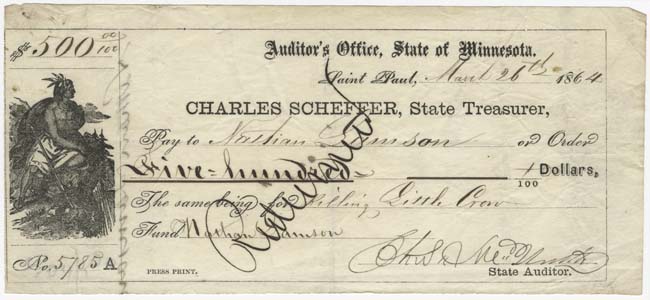 $500 00/100
Auditor's Office, State of Minnesota.
Saint Paul, March 26th 1864
CHARLES SCHEFFER, State Treasurer,
Pay to Nathan Lamson or Order
Five-hundred /100 Dollars,
The same being for Killing Little Crow
Fund Nathan Lamson
No. 5785 A
PRESS PRINT.
State Auditor.